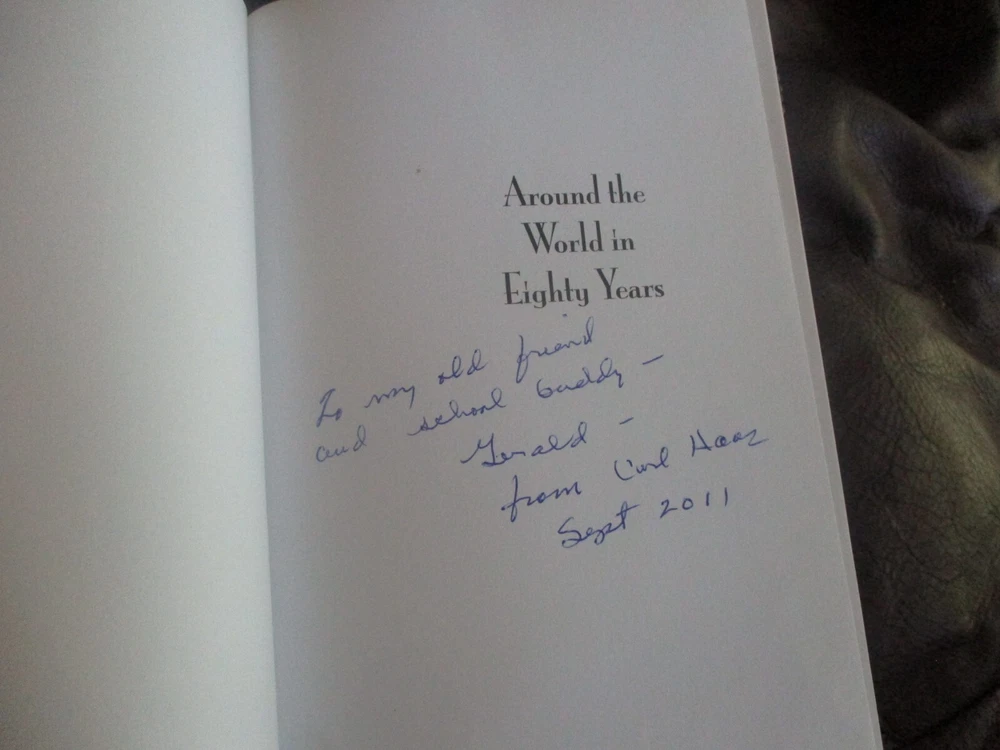 Around the
World in
Eighty Years
To my old friend
and school buddy —
Gerald —
from Carl Haaz
Sept 2011